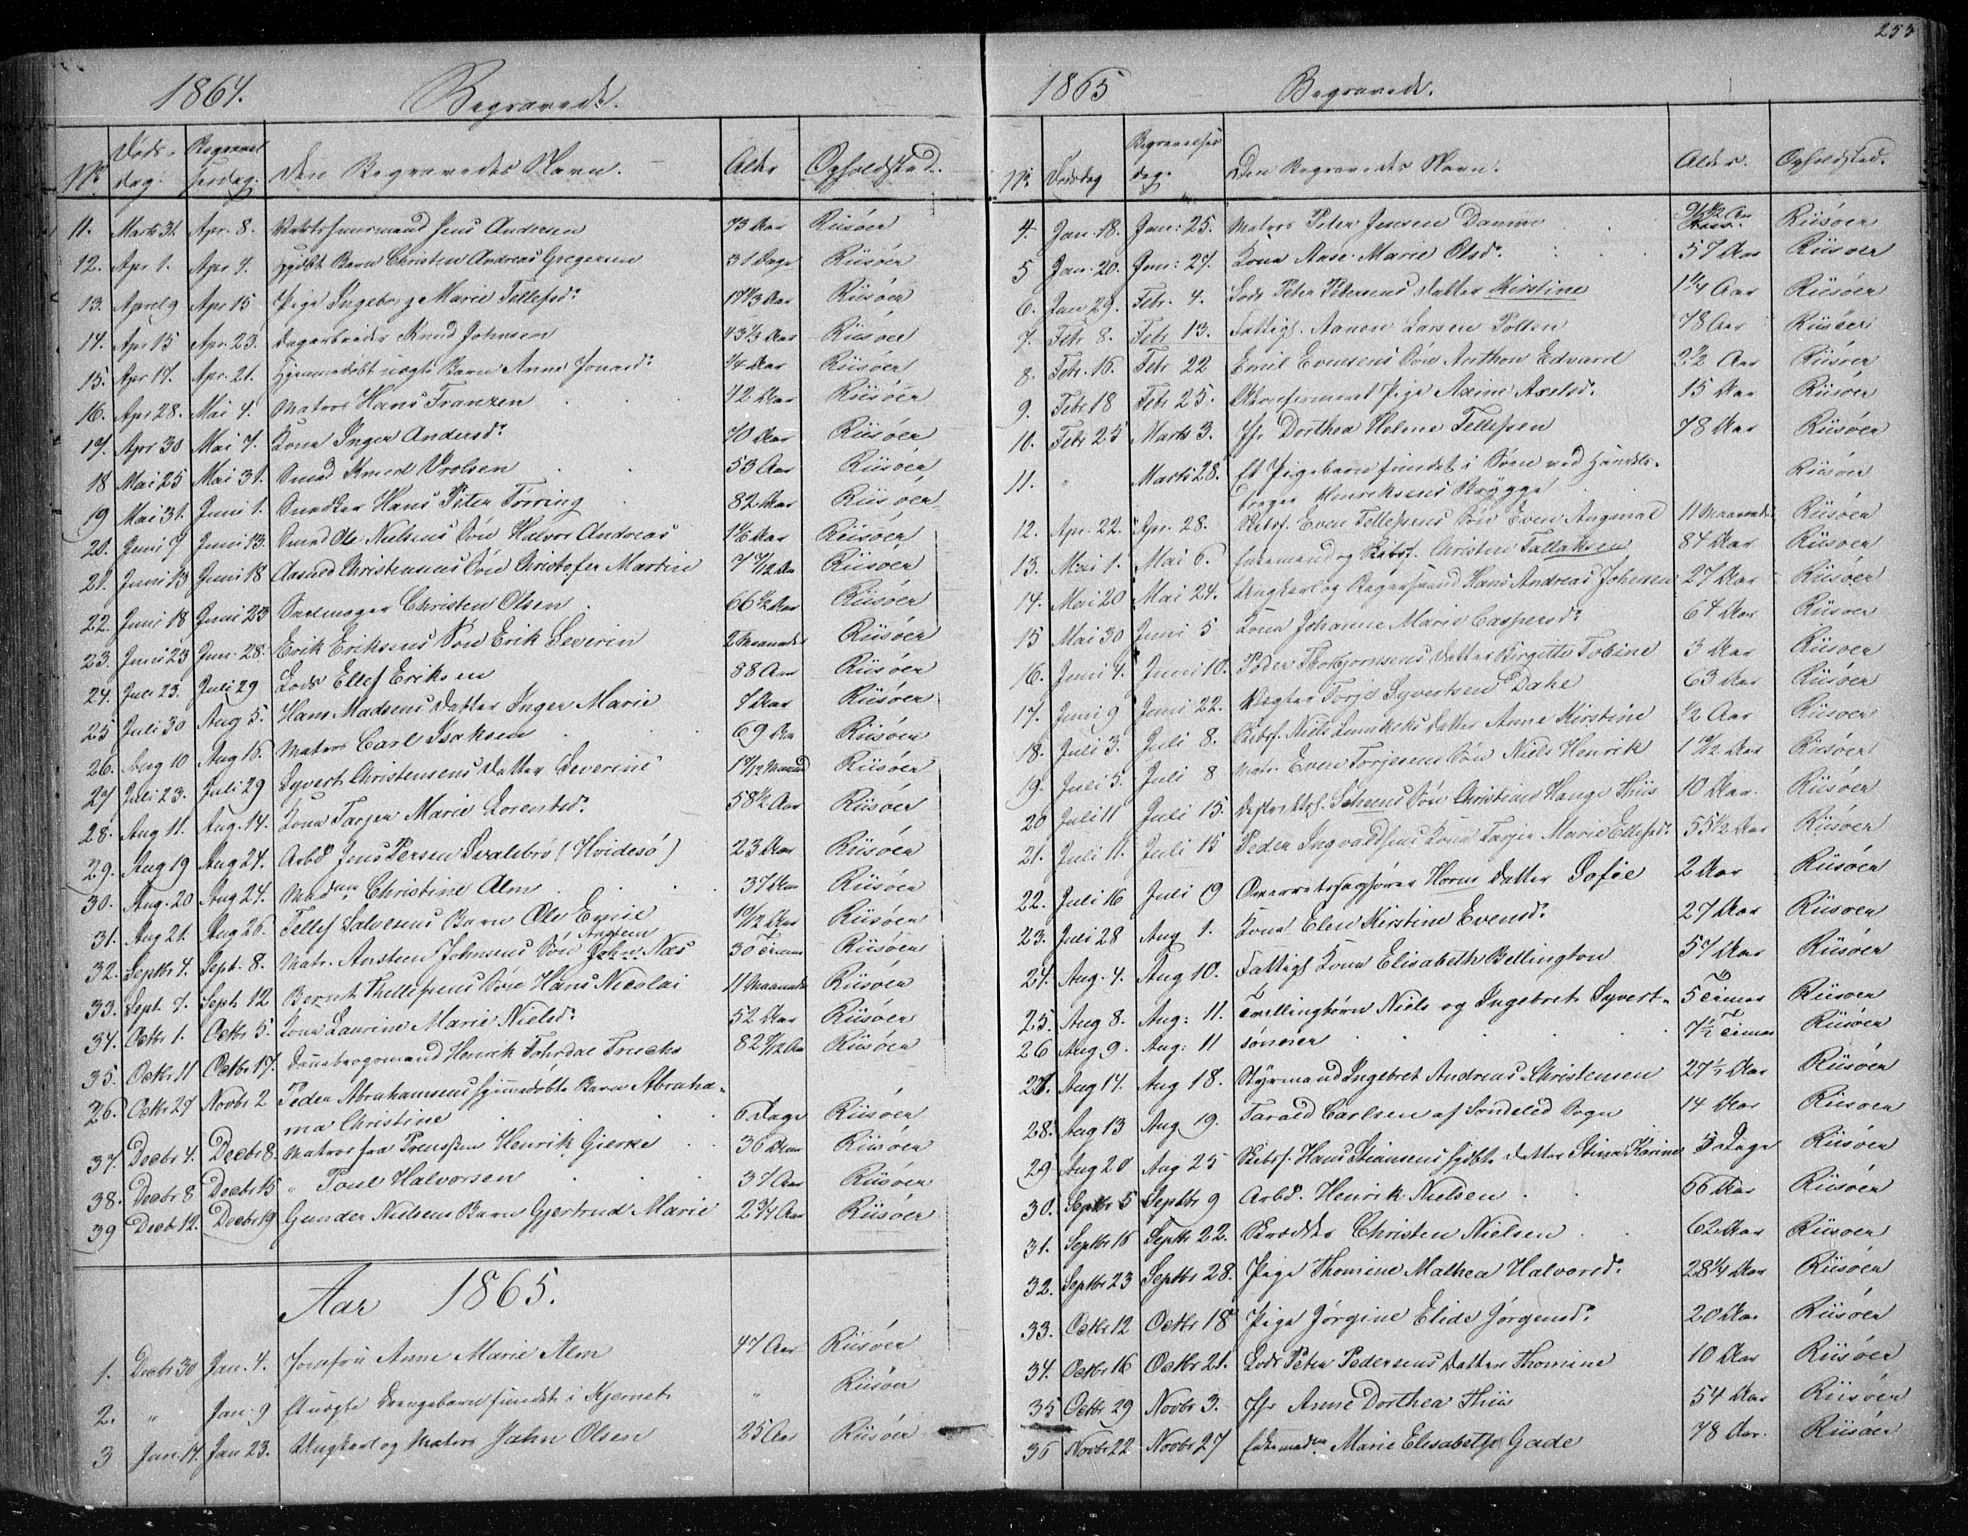 1864. Begravede.
No Døds-dag. Begravelsesdag. Den Begravedes Navn. Alder Opholdsted.
11. Marts 31. Apr. 8. Jens Andersen 73 Aar Riisøer
12. Apr 1. Apr 4. Barn Christen Andreas Gregersen 31 Dage Riisøer
13. April 9 Apr 15 Pige Ingeborg Marie Tellefsd: 17 1/3 Aar Riisøer
14. Apr 15 Apr. 23. Dagarbeider Knud Johnsen 43 1/3 Aar Riisøer
15. Apr 17. Apr. 21. Hjemmedøbt uægte Barn Anne Jonasd: 1/4 Aar Riisøer
16. Apr 28. Mai 4. Matros Hans Franzen 42 Aar Riisøer
17. Apr 30 Mai 7. Kone Inger Andersd: 70 Aar Riisøer
18 Mai 25 Mai 31. Smed Knud Vrolsen 53 Aar Riisøer
19 Mai 31. Juni 1. Snedker Hans Peter Tørring 82 Aar Riisøer
20. Juni 7 Juni 13. Smed Ole Nielsens Søn Halvor Andreas 1 1/6 Aar Riisøer
21. Juni 13 Juni 18 Aasmd Christensens Søn Christofer Martin 7 7/12 Aar Riisøer
22. Juni 18 Juni 23 Christen Olsen 66 1/2 Aar Riisøer
23. Juni 23 Jun. 28. Erik Eriksens Søn Erik Severin 2 Maaneder Riisøer
24. Juli 23. Juli 29 Lods Ellef Eriksen 88 Aar Riisøer
25 Juli 30 Aug 5. Hans Madsens Datter Inger Marie 7 Aar Riisøer
26. Aug 10 Aug 15. Matros Carl Isaksen 69 Aar Riisøer
27 Juli 23. Juli 29 Syvert Christensens Datter Severine Riisøer
28. Aug 11. Aug. 14. Kone Tarjer Marie Lorentsd: 58 1/2 Aar Riisøer
29. Aug 19 Aug 24. Arbd. Jens Persen Svalebro (Hvidesø) 23 Aar Riisøer
30. Aug. 20 Aug 24. Madm Christine Alm 37 Aar Riisøer
31. Aug 21. Aug 26. Tellef Salvesens Barn Ole Emil 10/12 Aar Riisøer
32. Septbr 4. Sept. 8. Matr. Ansteen Johnsens Søn Ansteen John Næs 30 Timer Riisøer
33. Sept. 7. Sept. 12 Bernt Thellefsens Søn Hans Nicolai 11 Maaneder Riisøer
34. Octbr 1. Octbr 5. Kone Laurine Marie Nielsd: 52 Aar Riisøer
35. Octbr 11 Octbr 17. Dannebrogsmand Henrik 82 Aar Riisøer
26. Octbr 27 Novbr 2 Peder Abrahamsens hjemmedøbte Barn Abraha-
ma Christine 6 Dage Riisøer
37. Decbr 4. Decbr 8. Matros fra Preussen Henrik Gierke 36 Aar Riisøer
38. Decbr 8 Decbr 15 " Poul Halvorsen 37 Aar Riisøer
39 Decbr 12. Decbr 19 Gunder Nielsens Barn Gjertrud Marie 2 3/4 Aar Riisøer
Aar 1865.
1. Decbr 30 Jan. 4. Jomfru Anne Marie Alm 47 Aar Riisøer
2. " Jan. 9 Et uægte Drengebarn fundet i Kjernet " Riisøer
3 Jan. 17. Jan 23. Ungkarl og Matros John Olsen 25 Aar Riisøer
255
1865 Begravede.
No Dødsdag Begravelses dag. Den Begravedes Navn. Alder. Opholdsted.
4. Jan. 18. Jan: 25. Matros Peter Jensen Damm Riisøer
5 Jan. 20. Jan: 27. Kone Aase Marie Olsd: 57 Aar Riisøer
6. Jan 29. Febr. 4. Lods Peter Petersens Datter Kirstine 1 1/4 Aar Riisøer
7. Febr 8. Febr 13. Fattigl. Aanen Larsen Potten 78 Aar Riisøer
8. Febr. 16. Febr 22 Emil Evensens Søn Anthon Edvard 2 1/2 Aar Riisøer
9. Febr 18 Febr 25. Pige Axine Axelsd. 15 Aar Riisøer
10. Febr 25 Marts 3. Jfr Dorthea Helene Tellefsen 78 Aar Riisøer
11. " Marts 28. Et Pigebarn fundet i Søen ved Handels-
borger Henriksens Brygge Riisøer
12. Apr. 22. Apr. 28. Skibsf. Even Tellefsens Søn Even Angmal 11 Maaneder Riisøer
13. Mai 1. Mai 6. Enkemand og Skibsf. Christen Tallaksen 84 Aar Riisøer
14. Mai 20 Mai 24. Ungkarl og Hans Andreas Johnsen 27 Aar Riisøer
15 Mai 30 Juni 5 Kone Johanne Marie Caspersd: 64 Aar Riisøer
16. Juni 4. Juni 10. Peder Thorbjørnsens Datter Birgitte Tobine 3 Aar Riisøer
17. Juni 9 Juni 22. Vægter Torje Syvertsen Dahl 63 Aar Riisøer
18. Juli 3. Juli 8. Skibsf. Niels Datter Anne Kirstine 1/2 Aar Riisøer
19. Juli 5. Juli 8 Matr. Even Torjesens Søn Niels Henrik Aar Riisøer
20 Juli 11 Juli 15. Søn Christian Hange Thiis 10 Aar. Riisøer
21. Juli 11. Juli 15 Peder Ingvaldsens Kone Tarjer Marie Ellefsd: 55 1/2 Aar Riisøer
22. Juli 16 Juli 19 Overretssagfører Horns Datter Sofie 2 Aar Riisøer
23. Juli 28 Aug 1. Kone Elen Kirstine Evensd: 27 Aar Riisøer
24. Aug. 4. Aug 10. Fattigl. Kone Elisabeth Bellington 57 Aar Riisøer
25. Aug 8. Aug: 11. Tvillingbørn Niels og Ingebret Syvert- 5 Timer Riisøer
26 Aug 9. Aug: 11 sønner 7 1/2 Timer Riisøer
27. Aug 14. Aug 18. Styrmand Ingebret Andreas Christensen 27 1/2 Aar Riisøer
28. Aug 13 Aug 19. Tarald Carlsen af Søndeled Sogn 14 Aar Riisøer
29 Aug 20 Aug 25 Skibsf. Hans Stiansens hjdbte Datter Stina Karine Dage Riisøer
30. Septbr 5 Septbr 9 Arbd. Henrik Nielsen 66 Aar Riisøer
31. Septbr 16 Septbr 22. Skrædder Christen Nielsen 62 Aar Riisøer
32. Septbr 23 Septbr 28. Pige Thomine Mathea Halvorsd: 28 1/4 Aar Riisøer
33. Octbr 12 Octbr 18 Pige Jørgine Elide Jørgensd: 20 Aar Riisøer
34. Octbr 16 Octbr 21. Lods Peter Pedersens Datter Thomine 10 Aar Riisøer
35 Octbr 29 Novbr 3. Jfr Anne Dorthea Thiis 54 Aar Riisøer
36 Novbr 22 Novbr 27 Enkemadm: Marie Elisabeth Gade 78 Aar. Riisøer